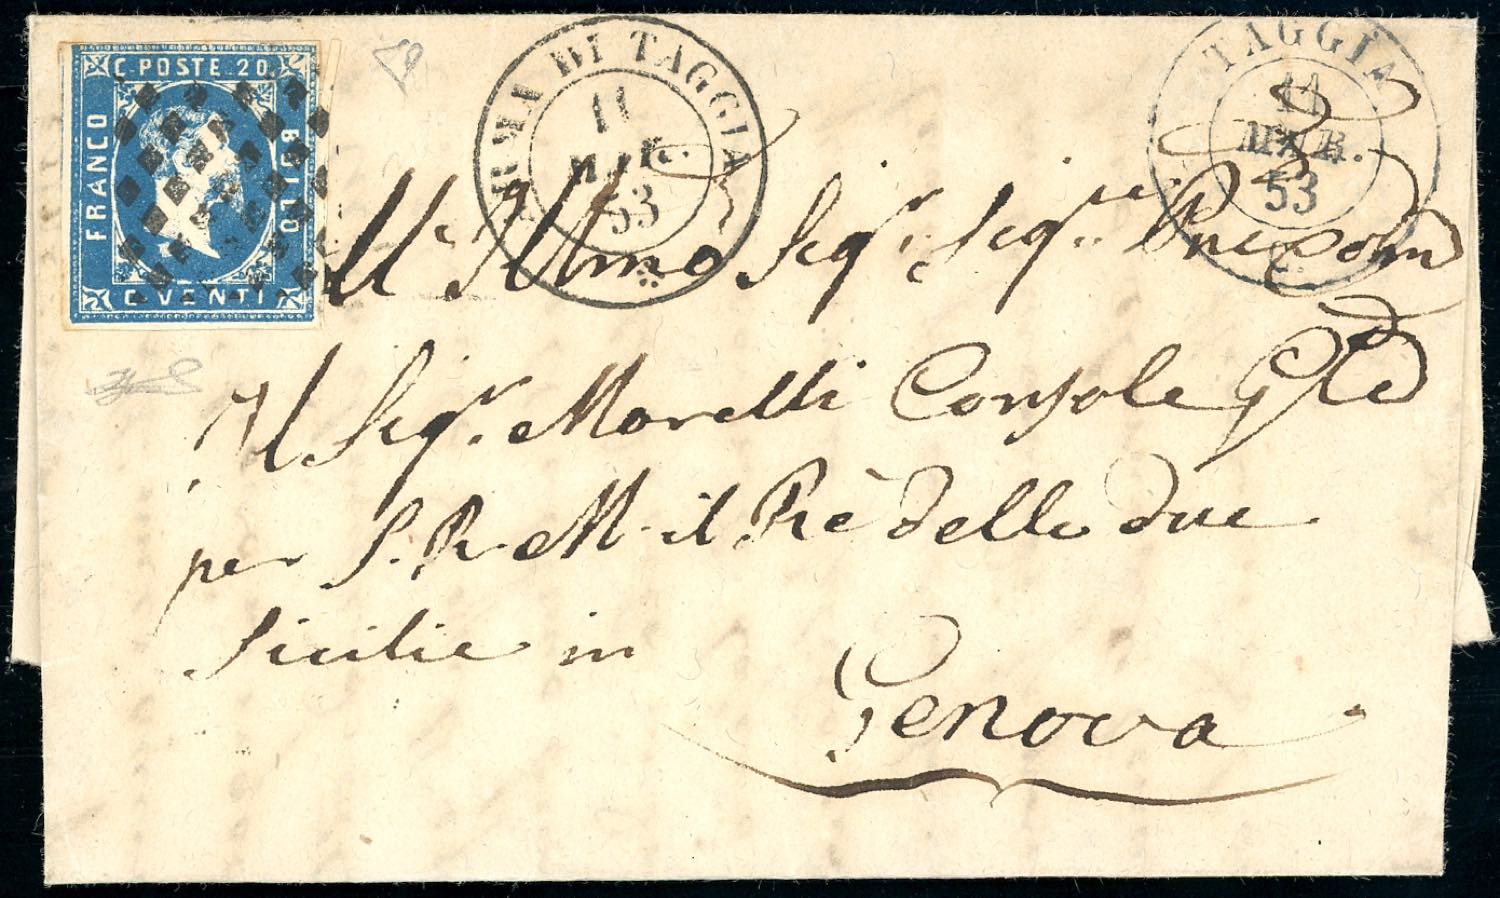 C. POSTE. 20
FRANCO
BOLLO
C. VENTI
ARMA DI TAGGIA
11
MAR.
53
TAGGIA
11
MAR.
53
All' Illmo Sigr. Sigr.
Il Sigr. Morelli Console Gle
per S. R. M. il Rè delle due
Sicilie in
Genova